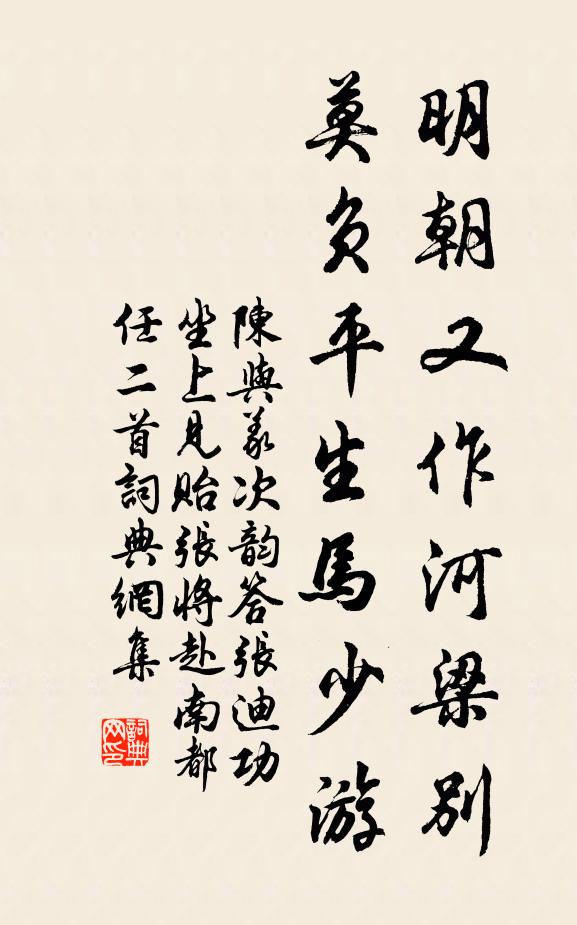 明朝又作河梁别
莫負平生馬少游
陳與義次韵答張迪功
坐上見貽張將赴南都
任二首詞典網集
詞典网印